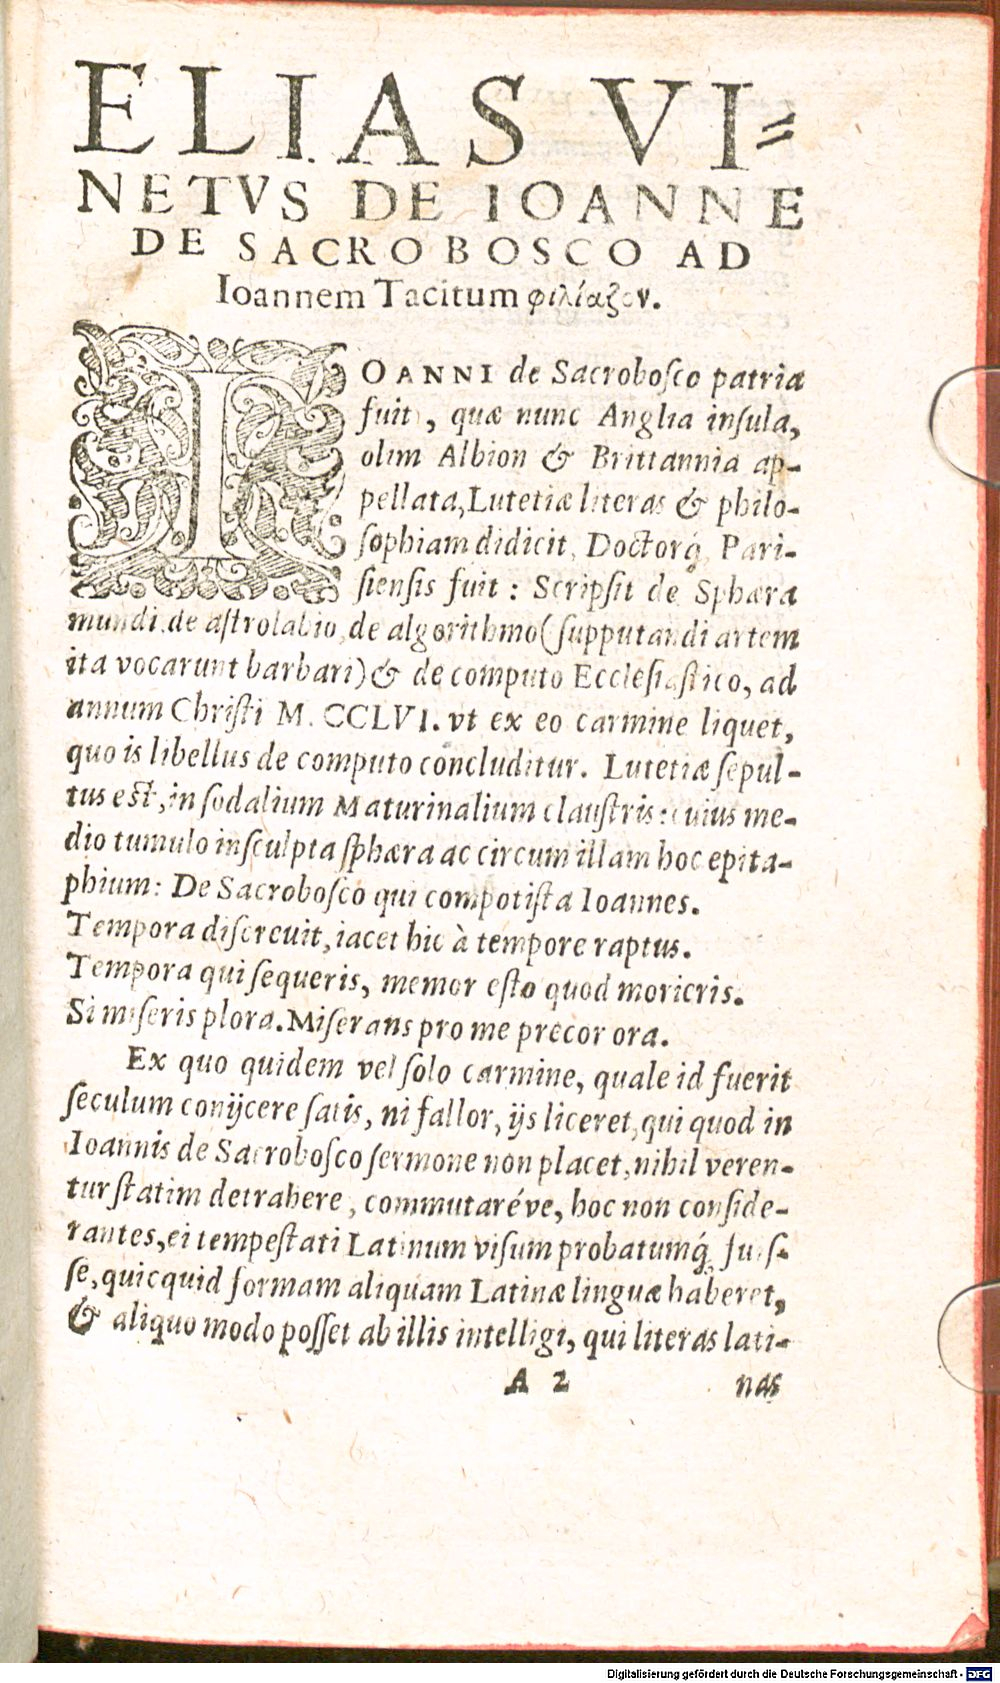 ELIAS VI=
NETVS DE IOANNE
DE SACROBOSCO AD
Ioannem Tacitum φιλίαζον.
IOANNI de Sacroboſco patria
fuit, quæ nunc Anglia inſula,
olim Albion & Brittannia ap-
pellata, Lutetiæ literas & philo-
ſophiam didicit, Doctorq́; Pari-
ſienſis fuit: Scripſit de Sphæra
mundi, de aſtrolabio, de algorithmo (ſupputandi artem
ita vocarunt barbari) & de computo Eccleſiaſtico, ad
annum Chriſti M. CCLVI. vt ex eo carmine liquet,
quo is libellus de computo concluditur. Lutetiæ ſepul-
tus eſt, in ſodalium Maturinalium clauſtris: cuius me-
dio tumulo inſculpta ſphæra ac circum illam hoc epita-
phium: De Sacroboſco qui compotiſta Ioannes.
Tempora diſcreuit, iacet hic à tempore raptus.
Tempora qui ſequeris, memor eſto quod morieris.
Si miſeris plora. Miſerans pro me precor ora.
Ex quo quidem vel ſolo carmine, quale id fuerit
ſeculum conijcere ſatis, ni fallor, ijs liceret, qui quod in
Ioannis de Sacroboſco ſermone non placet, nihil veren-
tur ſtatim detrahere, commutaréve, hoc non conſide-
rantes, ei tempeſtati Latinum viſum probatumq́; fuiſ-
ſe, quicquid formam aliquam Latinæ linguæ haberet,
& aliquo modo poſſet ab illis intelligi, qui literas lati-
A 2 nas
Digitalisierung gefördert durch die Deutsche Forschungsgemeinschaft - DFG